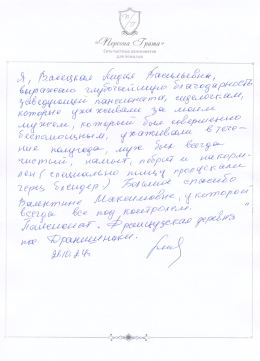 «Персона Грата»
Сеть частных пансионатов
для пожилых
Я, Лидия Васильевна,
выражаю глубочайшую благодарность
заведующей пансионата, сиделкам,
которые ухаживали за моим
мужем, который был совершенно
беспомощным, ухаживали в тече-
ние полугода, муж был всегда
чистый, помыт, побрит и накорм-
лен (специально пищу пропускали
через блендер) Большое спасибо
Валентине Максимовне, у которой
всегда все под контролем.
Пансионат „Французская деревня"
пос. Дранишники.